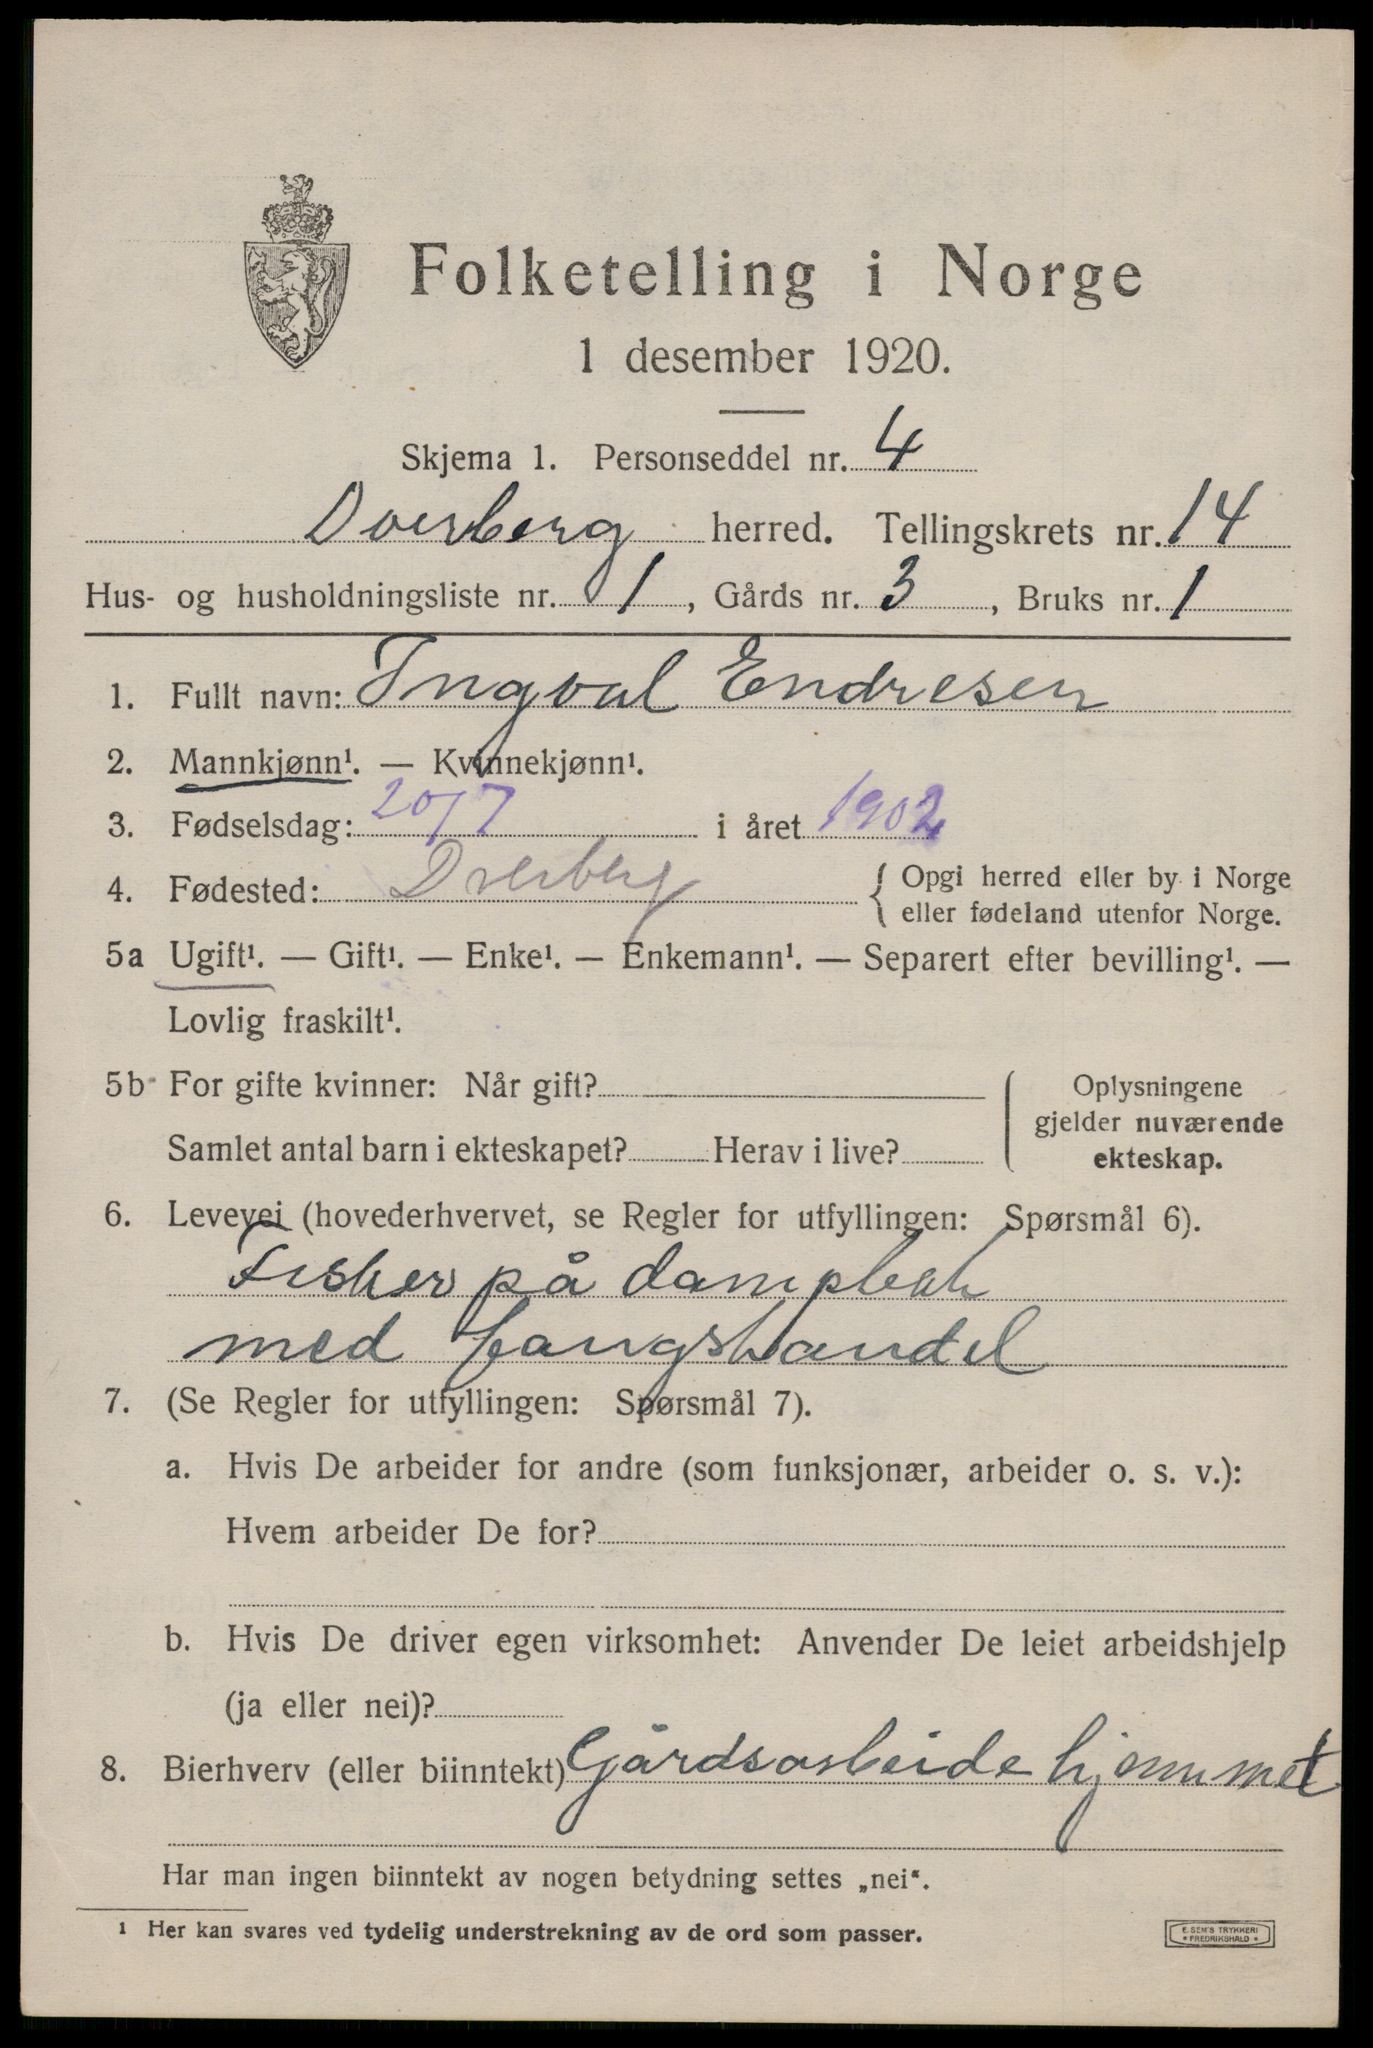 Folketelling i Norge
1 desember 1920.
Skjema 1. Personseddel nr. 4
Dverberg herred. Tellingskrets nr. 14
Hus- og husholdningsliste nr. 1, Gårds nr. 3, Bruks nr. 1
1. Fullt navn: Ingval Endresen
2. Mannkjønn¹. — Kvinnekjønn¹.
3. Fødselsdag: 20/7 i året 1902
4. Fødested: Dverberg { Opgi herred eller by i Norge
eller fødeland utenfor Norge.
5a Ugift¹. — Gift¹. — Enke¹. — Enkemann¹. — Separert efter bevilling¹. —
Lovlig fraskilt¹.
5b For gifte kvinner: Når gift?
Samlet antal barn i ekteskapet? Herav i live?
Oplysningene
gjelder nuværende
ekteskap.
6. Levevei (hovederhvervet, se Regler for utfyllingen: Spørsmål 6).
Fisker på
med
7. (Se Regler for utfyllingen: Spørsmål 7).
a. Hvis De arbeider for andre (som funksjonær, arbeider o. s. v.):
Hvem arbeider De for?
b. Hvis De driver egen virksomhet: Anvender De leiet arbeidshjelp
(ja eller nei)?
8. Bierhverv (eller biinntekt) Gårdsarbeide hjemmet
Har man ingen biinntekt av nogen betydning settes „nei“.
1 Her kan svares ved tydelig understrekning av de ord som passer.
E. SEM'S TRYKKERI
• FREDRIKSHALD •